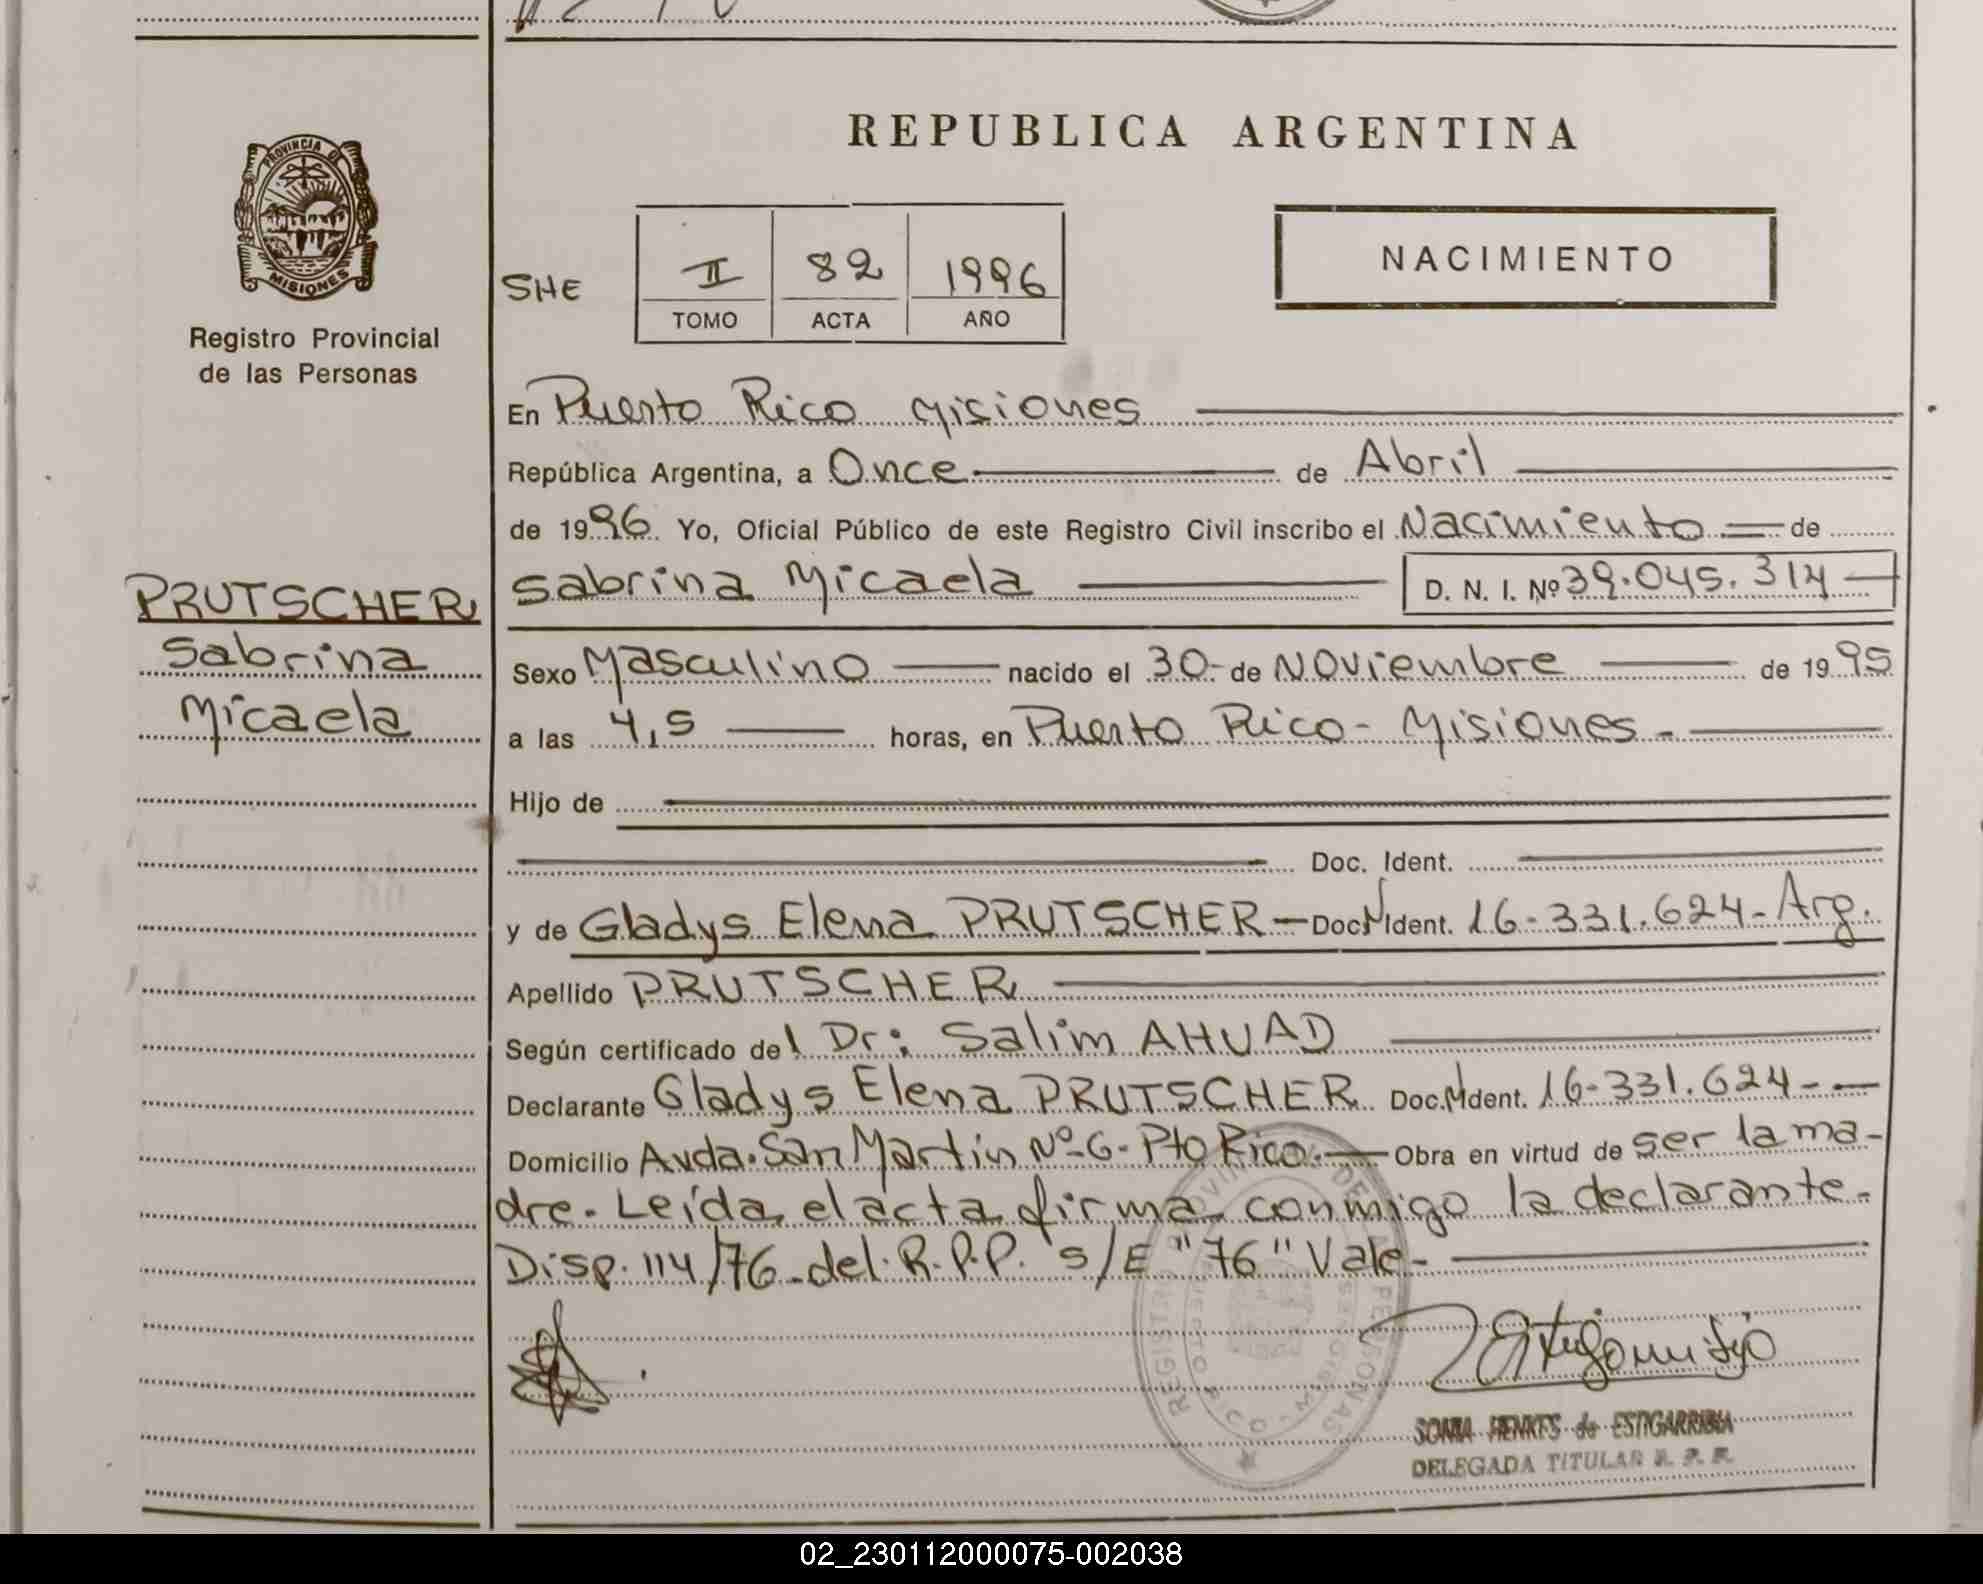 REPUBLICA ARGENTINA
PROVINCIA DE
MISIONES
Registro Provincial
de las Personas
SHE
II 82 1996
TOMO ACTA AÑO
NACIMIENTO
En Puerto Rico Misiones
República Argentina, a Once de Abril
de 1996. Yo, Oficial Público de este Registro Civil inscribo el Nacimiento de
PRUTSCHER
Sabrina
Micaela
Sabrina Micaela D. N. I. Nº 39.045.314
Sexo Masculino nacido el 30 de Noviembre de 1995
a las 4,5 horas, en Puerto Rico - Misiones -
Hijo de
Doc. Ident.
y de Gladys Elena PRUTSCHER - Doc. N Ident. 16-331.624- Arg.
Apellido PRUTSCHER
Según certificado del Dr: Salim AHUAD
Declarante Gladys Elena PRUTSCHER Doc. N Ident. 16-331.624-
Domicilio Avda. San Martín Nº 6- Pto Rico. Obra en virtud de ser la ma-
dre. Leída el acta firma conmigo la declarante.
Disp. 114/76 del R.P.P. s/E "76" Vale-
REGISTRO PROVINCIAL DE LAS PERSONAS
SONIA HENKES de ESTIGARRIBIA
DELEGADA TITULAR R. P. P.
02_230112000075-002038